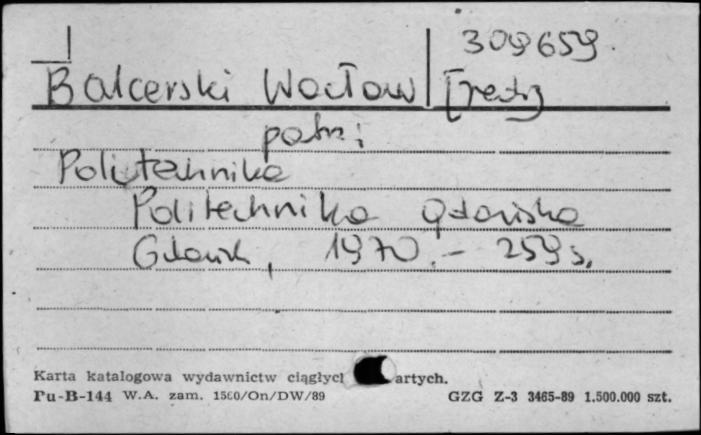 309659.
Balcerski Wacław [red.]
patrz:
Politechnika
Politechnika Gdańska
Gdańsk, 1970. - 259 s.
Karta katalogowa wydawnictw ciągłyc artych.
Pu-B-144 W.A. zam. 1560/On/DW/89 GZG Z-3 3465-89 1.500.000 szt.